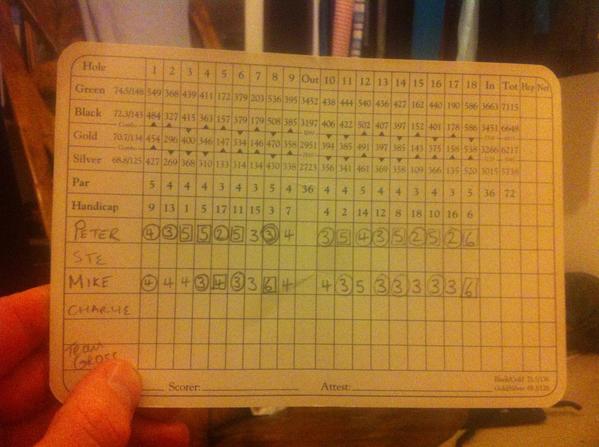 Hole 1 2 3 4 5 6 7 8 9 Out 10 11 12 13 14 15 16 17 18 In Tot Hcp Net
Green 74.5/148 549 368 439 411 172 379 203 536 395 3452 438 444 540 436 427 162 440 190 586 3663 7115
Black 72.3/143 484 327 415 363 157 379 179 508 385 3197 406 422 502 407 397 152 401 178 586 3451 6648
Gold 70.7/134 454 296 400 346 147 334 146 470 358 2951 394 385 491 397 385 143 375 158 538 3266 6217
Silver 68.8/125 427 269 368 310 133 314 134 430 338 2723 356 341 461 369 358 109 366 135 520 3015 5738
Par 5 4 4 4 3 4 3 5 4 36 4 4 5 4 4 3 4 3 5 36 72
Handicap 9 13 1 5 17 11 15 3 7 4 2 14 12 8 18 10 16 6
PETER 4 3 5 5 2 5 3 3 4 3 5 4 3 5 2 5 2 6
STE
MIKE 4 4 4 3 4 3 3 6 4 4 3 5 3 3 3 3 3 6
CHARLIE
TEAM
GROSS
Scorer: Attest: